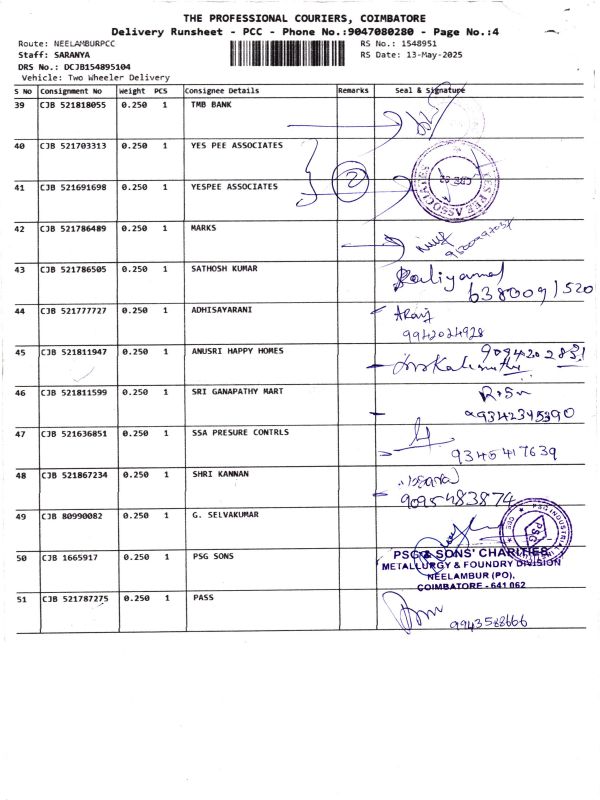 THE PROFESSIONAL COURIERS, COIMBATORE
Delivery Runsheet - PCC - Phone No.:9047080280 - Page No.:4
Route: NEELAMBURPCC
RS No.: 1548951
Staff: SARANYA
RS Date: 13-May-2025
DRS No.: DCJB154895104
Vehicle: Two Wheeler Delivery
S No Consignment No Weight PCS Consignee Details Remarks Seal & Signature
39 CJB 521818055 0.250 1 TMB BANK
40 CJB 521703313 0.250 1 YES PEE ASSOCIATES
2
YES PEE ASSOCIATES
CBE-62
41 CJB 521691698 0.250 1 YESPEE ASSOCIATES
42 CJB 521786489 0.250 1 MARKS
43 CJB 521786505 0.250 1 SATHOSH KUMAR
6380091520
44 CJB 521777727 0.250 1 ADHISAYARANI
9942024928
45 CJB 521811947 0.250 1 ANUSRI HAPPY HOMES 9094202831
46 CJB 521811599 0.250 1 SRI GANAPATHY MART
9342345390
47 CJB 521636851 0.250 1 SSA PRESURE CONTRLS
9345417639
48 CJB 521867234 0.250 1 SHRI KANNAN
9095483874
49 CJB 80990082 0.250 1 G. SELVAKUMAR
50 CJB 1665917 0.250 1 PSG SONS
PSG & SONS' CHARITIES
METALLURGY & FOUNDRY DIVISION
NEELAMBUR (PO),
COIMBATORE - 641 062
51 CJB 521787275 0.250 1 PASS
9943588666